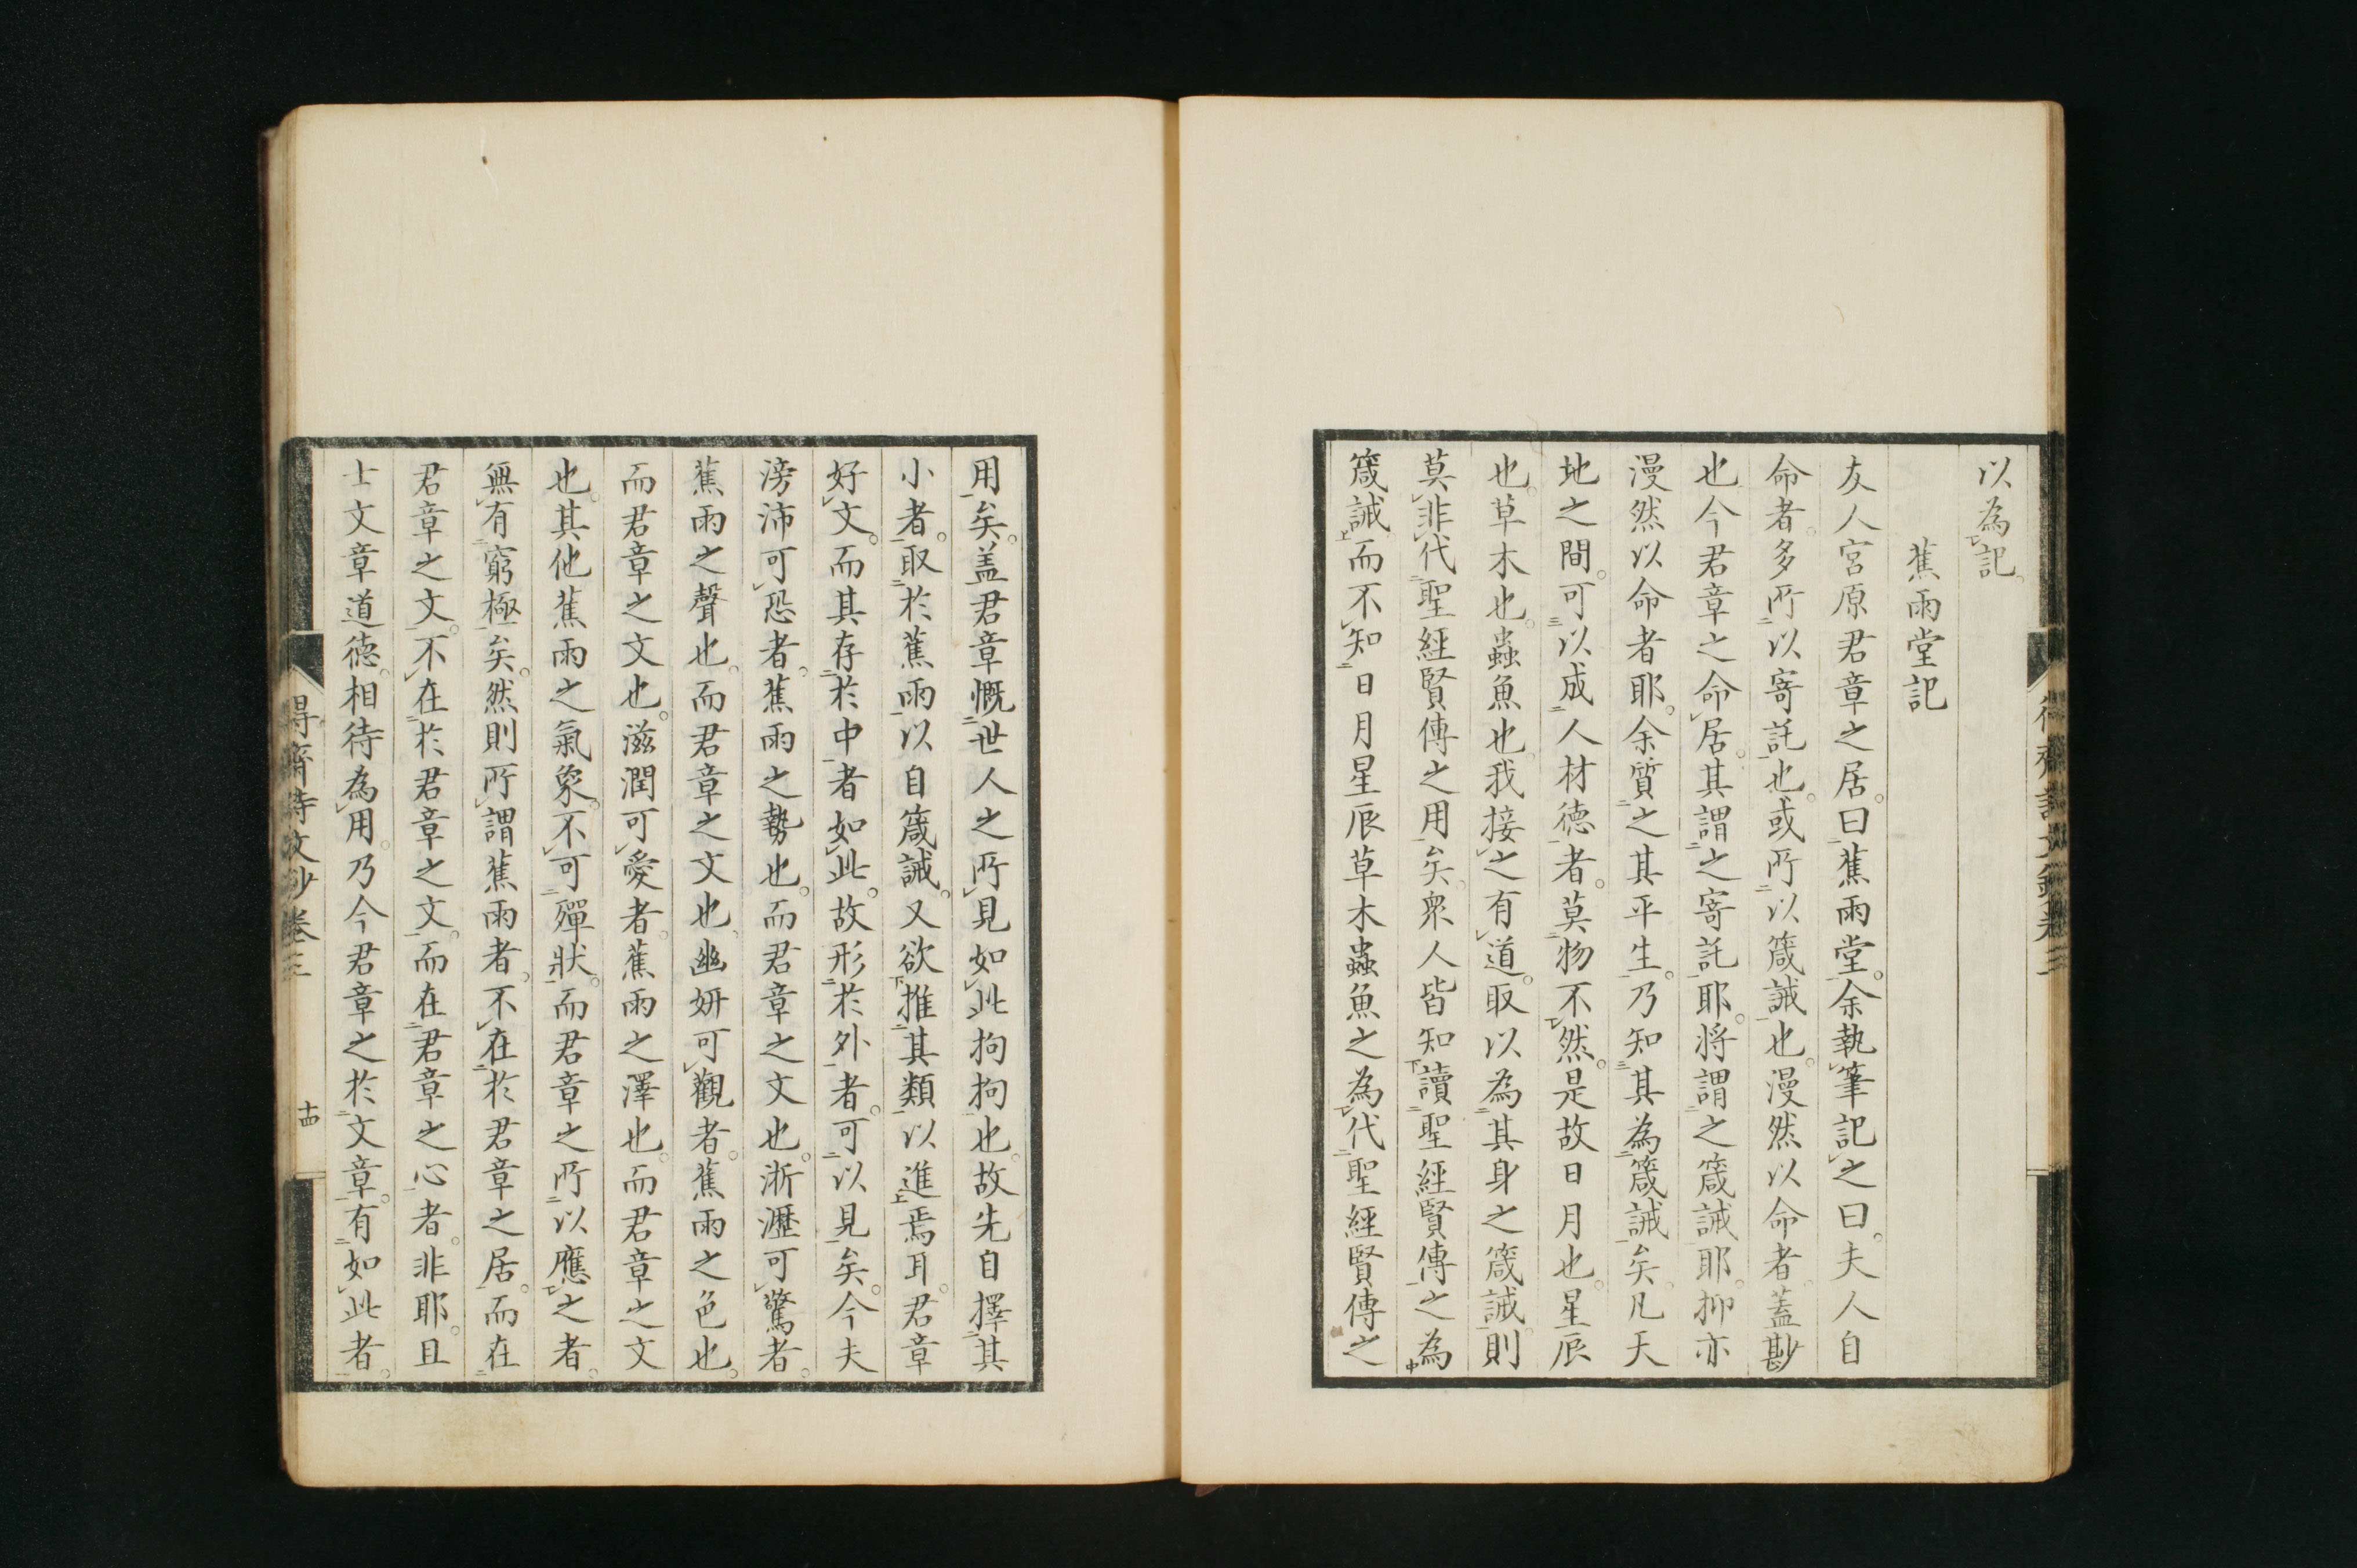 以為記。
蕉雨堂記
友人宮原君章之居。曰蕉雨堂。余執筆記之曰。夫人自
命者。多所以寄託也。或所以箴誡也。漫然以命者。蓋尠
也。今君章之命居。其謂之寄託耶。將謂之箴誡耶。抑亦
漫然以命者耶。余質之其平生。乃知其為箴誡矣。凡天
地之間。可以成人材德者。莫物不然。是故日月也。星辰
也。草木也。蟲魚也。我接之有道。取以為其身之箴誡。則
莫非代聖經賢傳之用矣。衆人皆知讀聖經賢傳之為
箴誡。而不知日月星辰草木蟲魚之為代聖經賢傳之
用矣。盖君章慨世人之所見如此拘拘也。故先自擇其
小者。取於蕉雨以自箴誡。又欲推其類以進焉耳。君章
好文。而其存於中者如此。故形於外者。可以見矣。今夫
滂沛可恐者。蕉雨之勢也。而君章之文也。淅瀝可驚者。
蕉雨之聲也。而君章之文也。幽妍可觀者。蕉雨之色也。
而君章之文也。滋潤可愛者。蕉雨之澤也。而君章之文
也。其他蕉雨之氣象。不可殫狀。而君章之所以應之者。
無有窮極矣。然則所謂蕉雨者。不在於君章之居。而在
君章之文。不在於君章之文。而在君章之心者。非耶。且
士文章道德。相待為用。乃今君章之於文章。有如此者。
得齋詩文鈔卷三
十四